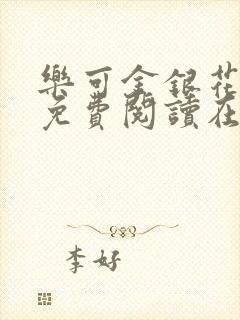 樂可金銀花
免費閱讀在
李好